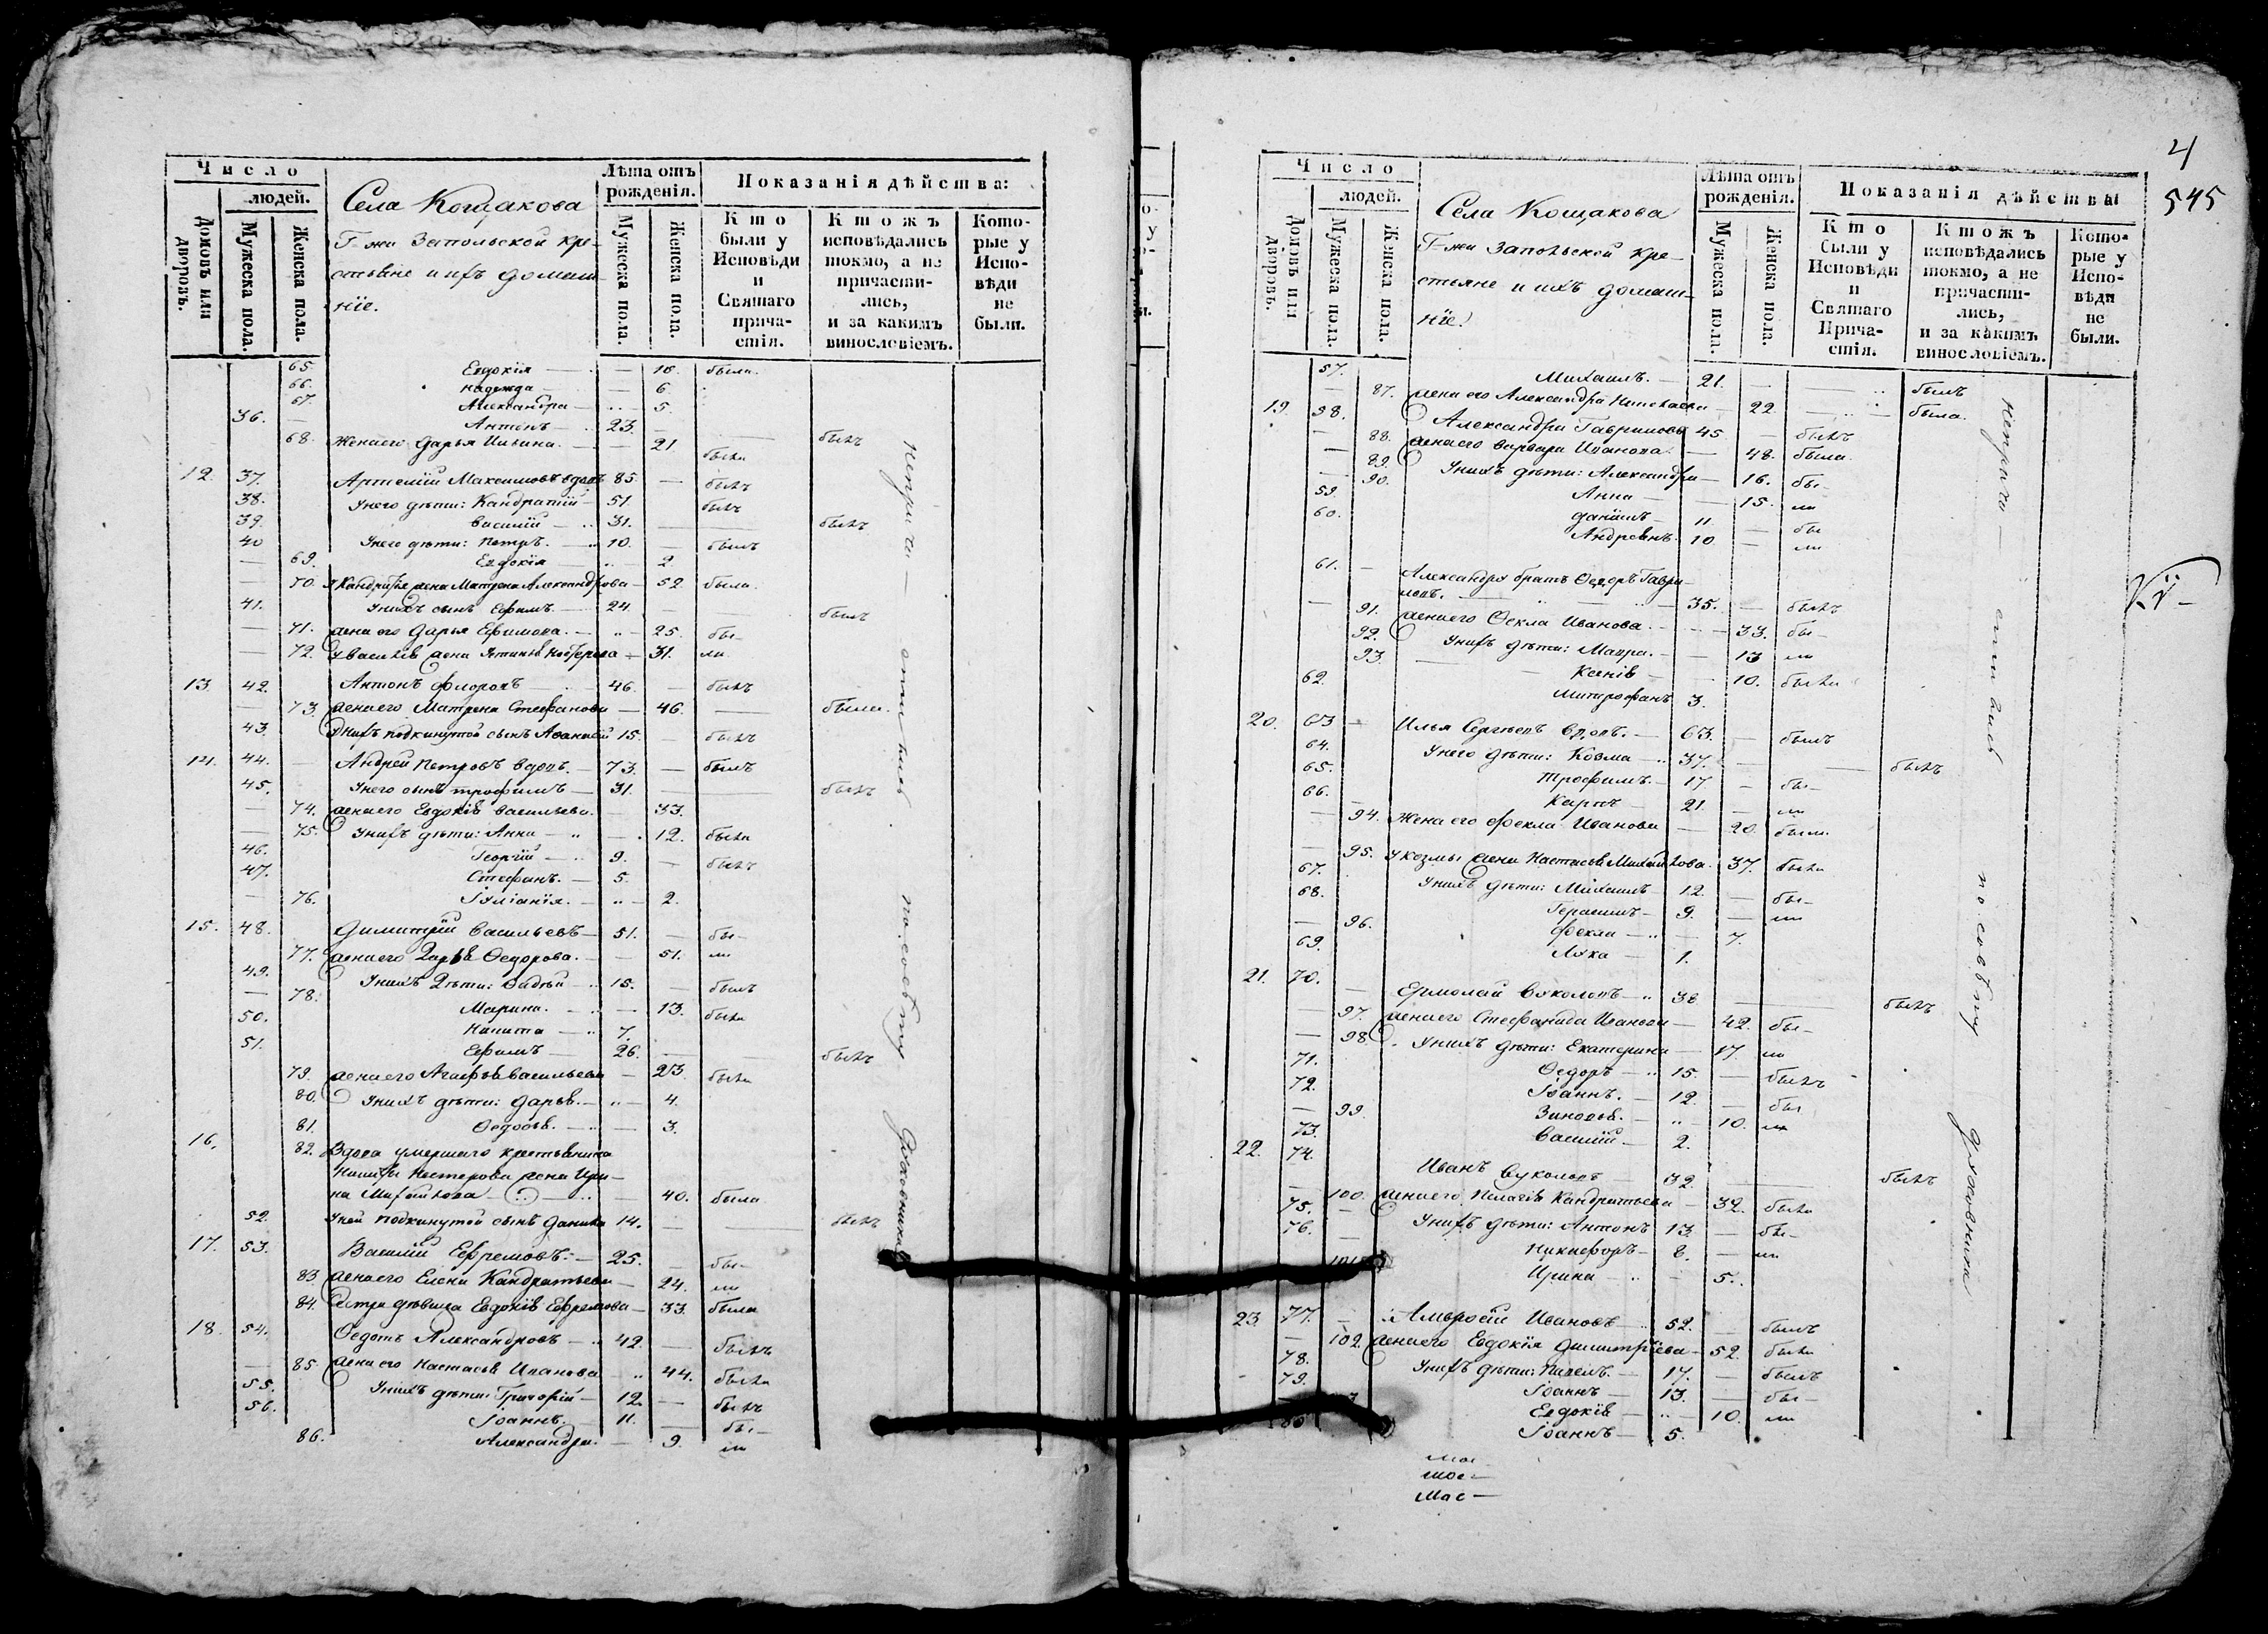 Число
людей.
Домовъ или дворовъ.
Мужеска пола.
Женска пола.
Села Кощакова
Г-жи Запольской кре-
стьяне и ихъ домаш-
нїе.
Лѣта отъ рожденія.
Мужеска пола.
Женска пола.
Показанія дѣйства:
Кто были у Исповѣди и Святаго причастія.
Ктожъ исповѣдались токмо, а не причастились, и за какимъ винословіемъ.
Которые у Исповѣди не были.
65. Евдокїя — 18. была.
66. Надежда — 6
67. Александра — 5.
36. — Антонъ — 23. — былъ
68. Жена его Дарья — 21 была
12. 37. Артемїй Максимовъ вдовъ 85 — былъ
38. Унего дѣти: Кандратїй — 51. былъ
39. Василїй — 31. — былъ
40 Унего дѣти: Петръ. — 10. — былъ
— 69. Евдокїя — 2
— 70. у Кандратїя жена Матрена Александрова — 52 была.
41. Унихъ сынъ Ефимъ. — 24. — былъ
— 71. жена его Дарья Ефимова. — 25. бы-
— 72. у Василїя жена — 31. ли
13. 42. Антонъ Флоровъ — 46. — былъ
— 73. жена его Матрена Стефанова — 46. — была.
43. Унихъ подкинутой сынъ Аѳанасїй 15. — былъ
14. 44. — Андрей Петровъ вдовъ. — 73. — былъ
45. Унего сынъ Трофимъ — 31. — былъ
— 74. жена его Евдокїя Васильева. — 33.
— 75. Унихъ дѣти: Анна — 12. была
46. Георгїй — 9. — былъ
47. Стефанъ. — 5.
— 76. Іулїанїя. — 2.
15. 48. Димитрїй Васильевъ — 51. — бы-
77. жена его Дарья Ѳедорова. — 51. ли
49. Унихъ дѣти: Фадѣй — 15. — былъ
— 78. Марина. — 13. была
50. Никита — 7.
51. Ефимъ — 26. — былъ
79. жена его Агафья Васильева — 23. была
80. Унихъ дѣти: Дарья. — 4.
81. Ѳедосья. — 3.
16. 82. Вдова умершаго крестьянина
Никиты Нестерова жена Ири-
на Михайлова — 40. была
52. Уней подкинутой сынъ Данила 14. — былъ
17. 53. Василїй Ефремовъ. — 25. — бы-
83 жена его Елена Кандратьева — 24. ли
84. Сестра дѣвица Евдокїя Ефремова — 33. была
18. 54. Ѳедотъ Александровъ — 42. — былъ
— 85. жена его Настасья Иванова — 44. была
55. Унихъ дѣти: Григорїй — 12. — былъ
56. Іоаннъ. — 11. — бы-
86. Александра. — 9. ли
неприча — стились по совѣту духовника
4
545
Число
людей.
Домовъ или дворовъ.
Мужеска пола.
Женска пола.
Села Кощакова
Г-жи Запольской кре-
стьяне и ихъ домаш-
нїе.
Лѣта отъ рожденія.
Мужеска пола.
Женска пола.
Показанія дѣйства:
Кто были у Исповѣди и Святаго Причастія.
Ктожъ исповѣдались токмо, а не причастились, и за какимъ винословіемъ.
Которые у Исповѣди не были.
57. Михаилъ. — 21. — былъ
— 87. жена его Александра — 22. — была.
19. 58. Александръ Гавриловъ 45 — былъ
— 88. жена его Варвара Иванова. — 48. была.
— 89. Унихъ дѣти: Александра — 16. бы-
— 90. Анна — 15. ли
59. Данїилъ — 11. — бы
60. Андреянъ. 10. — ли
61. — Александра братъ Ѳедоръ Гаври-
ловъ. — 35. — былъ
— 91. жена его Ѳекла Иванова. — 33. бы-
92. Унихъ дѣти: Мавра. — 13 ли
93. — Ксенїя — 10. была
62. Митрофанъ 3.
20. 63 — Илья Сергѣевъ вдовъ. — 63. — былъ
64. Унего дѣти: Козма — 37. — былъ
65. Трофимъ. — 17 — бы-
66. — Карпъ — 21. — ли
— 94. Жена его Фекла Иванова — 20. была.
— 95. у Козмы жена Настасья Михайлова. 37. была
67. Унихъ дѣти: Михаилъ — 12. — бы-
68. Герасимъ — 9. — ли
— 96. Фекла — 7.
69. Лука — 1.
21. 70. — Ермолай Вуколовъ — 38 — былъ
— 97. жена его Стефанида Иванова — 42. бы-
— 98. Унихъ дѣти: Екатерина — 17. ли
71. Ѳедоръ — 15. — былъ
72. Іоаннъ. — 12. — бы
— 99. Зиновья. — 10. ли
73. Василїй — 2.
22. 74. Иванъ Вуколовъ — 32. — былъ
— 100. жена его Пелагїя Кандратьева — 32. была
75. — Унихъ дѣти: Антонъ 13. — бы-
76. — Никифоръ — 8. — ли
101 Ирина — 5.
23. 77. — Амвросїй Ивановъ — 52. — былъ
— 102. жена его Евдокїя Димитрїева — 52. была
78. Унихъ дѣти: Павелъ. — 17. — былъ
79. Іоаннъ — 13. — бы-
Евдокїя — 10. ли
80 Іоаннъ — 5.
неприча — стились по совѣту духовника